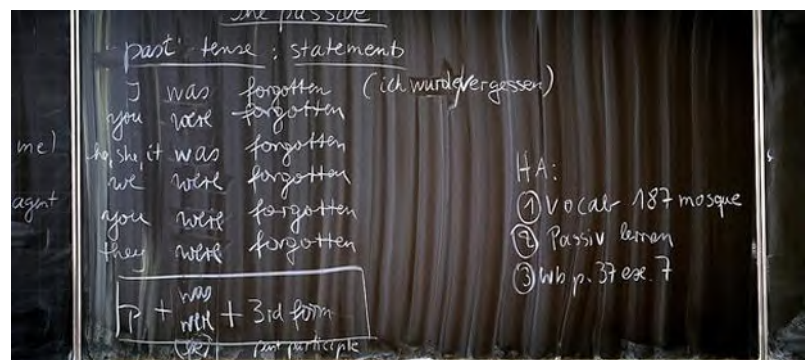 The passive
past tense : statements
I was forgotten (ich wurde vergessen)
you were forgotten
he, she, it was forgotten
we were forgotten
you were forgotten
they were forgotten
P + was were + 3rd form
past participle
me)
agent
HA:
① Vocab 187 mosque
② Passiv lernen
③ wb p. 37 exe. 7